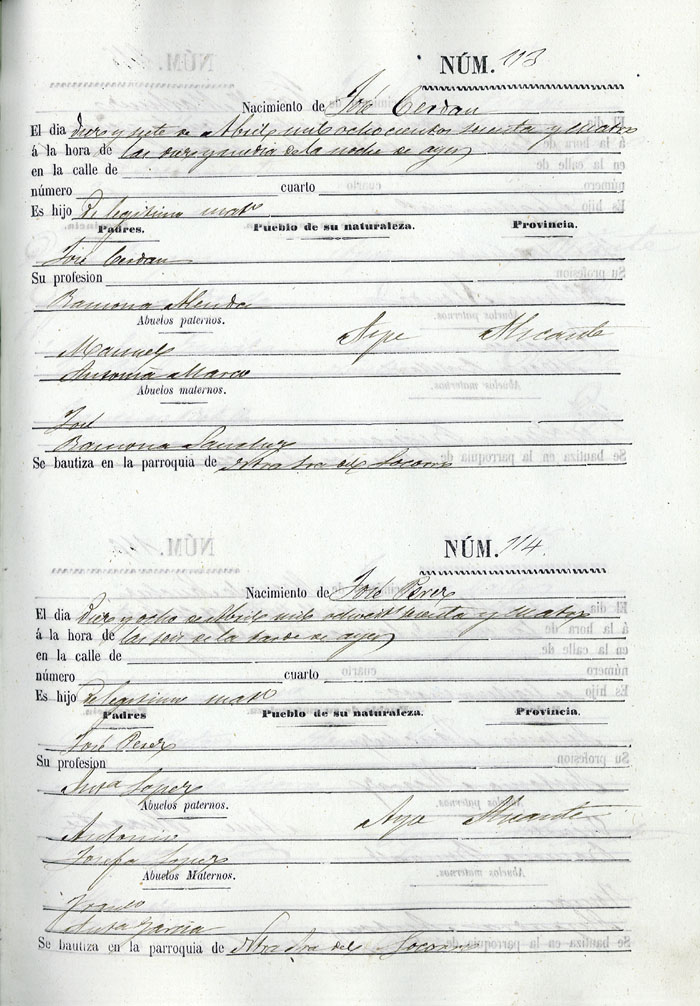 NÚM. 113
Nacimiento de José Cerdan
El dia diez y siete de Abril mil ochocientos sesenta y cuatro
á la hora de las once y media de la noche de ayer
en la calle de
número cuarto
Es hijo de legitimo matº
Padres. Pueblo de su naturaleza. Provincia.
José Cerdan
Su profesion
Ramona Alenda
Abuelos paternos.
Manuel Aspe Alicante
Antonia Marco
Abuelos maternos.
José
Ramona Sanchez
Se bautiza en la parroquia de Ntra Sra del Socorro
NÚM. 114
Nacimiento de José Perez
El dia diez y ocho de Abril mil ochocits sesenta y cuatro
á la hora de las seis de la tarde de ayer
en la calle de
número cuarto
Es hijo de legitimo matº
Padres Pueblo de su naturaleza. Provincia.
José Perez
Su profesion
Lopez
Abuelos paternos.
Antonio Aspe Alicante
Josefa Lopez
Abuelos Maternos.
Garcia
Se bautiza en la parroquia de Ntra Sra del Socorro